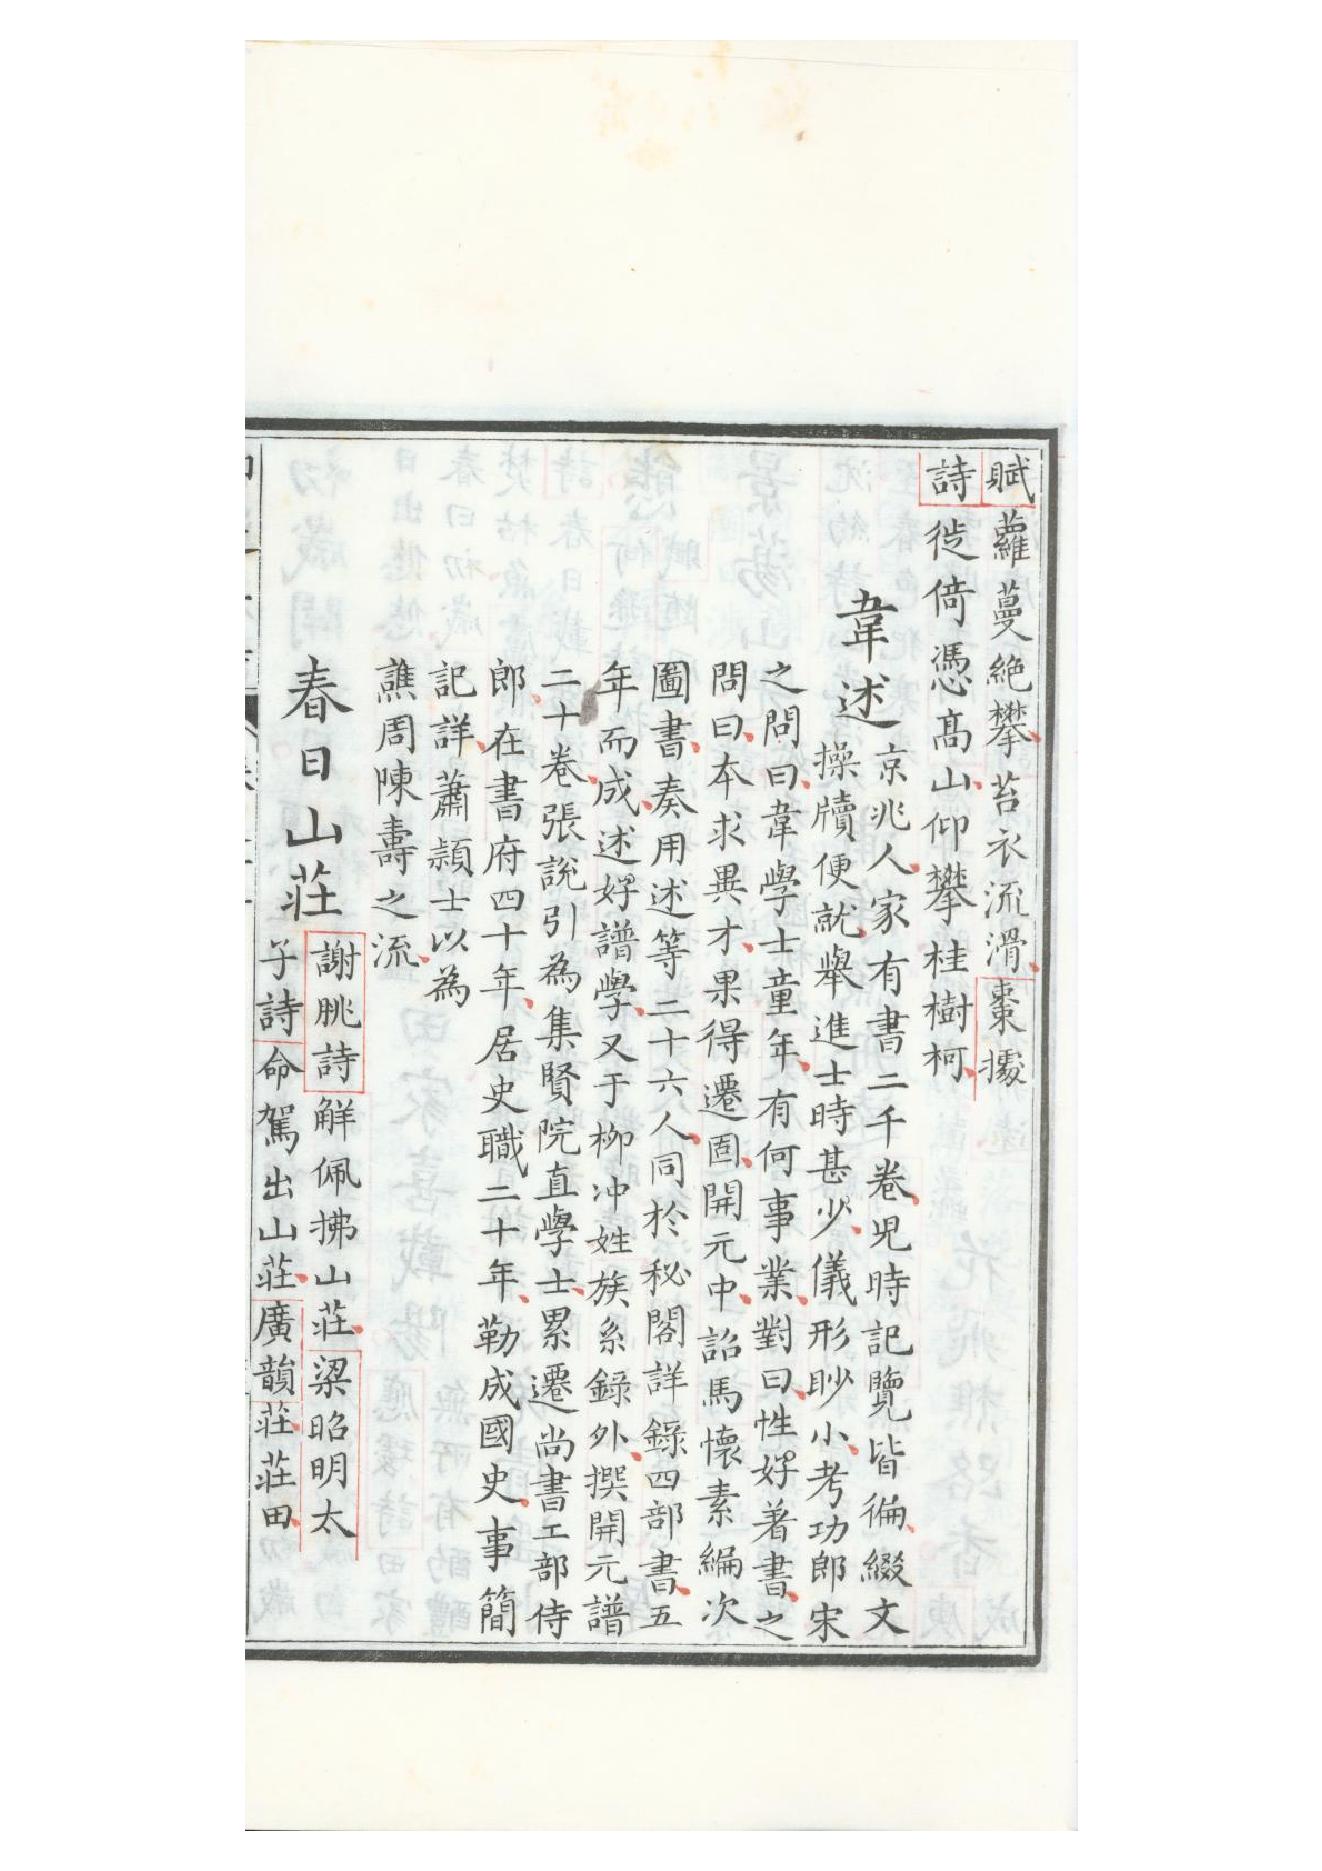 賦蘿蔓絶攀苔衣流滑棗據
詩徙倚憑高山仰攀桂樹柯
韋述京兆人家有書二千卷児時記覽皆徧綴文
操牘便就舉進士時甚少儀形眇小考功郎宋
之問曰韋學士童年有何事業對曰性好著書之
問曰本求異才果得遷固開元中詔馬懷素編次
圖書奏用述等二十六人同於秘閣詳錄四部書五
年而成述好譜學又于柳冲姓族系錄外撰開元譜
二十卷張說引為集賢院直學士累遷尚書工部侍
郎在書府四十年居史職二十年勒成國史事簡
記詳蕭頴士以為
譙周陳壽之流
春日山莊謝朓詩觧佩拂山莊梁昭明太
子詩命駕出山莊廣韻莊莊田